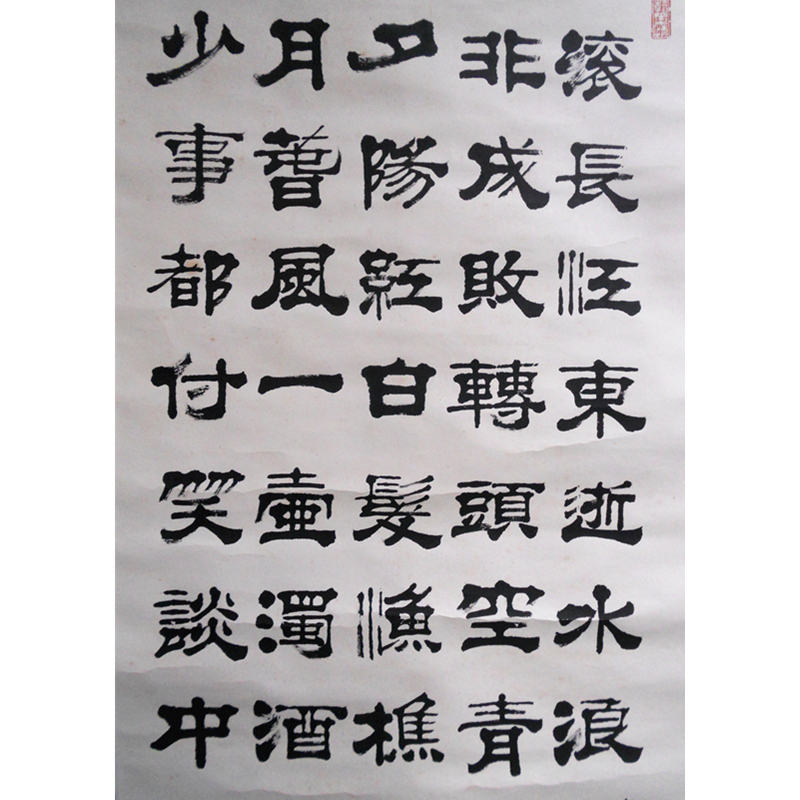 滚長江東逝水浪
非成敗轉頭空青
夕陽紅白髮漁樵
月萅風一壺濁酒
少事都付笑談中